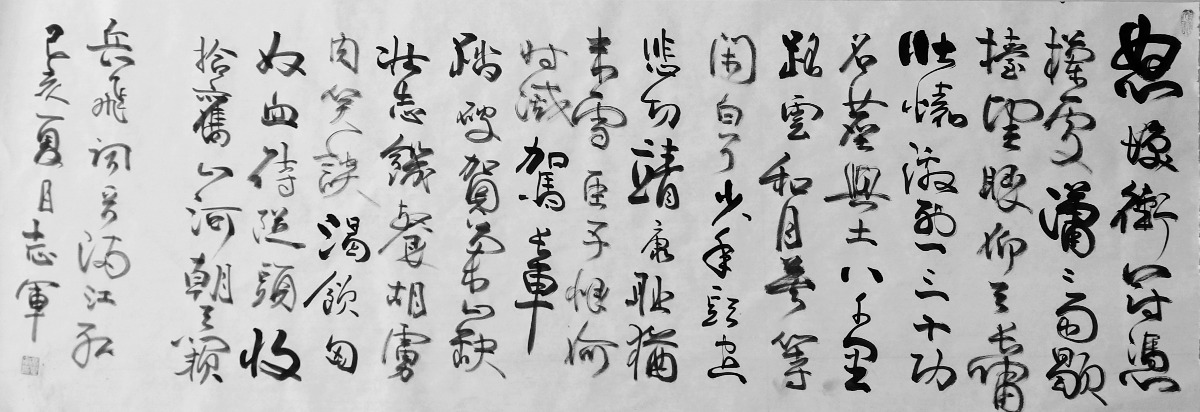 怒髮衝冠憑
欄處瀟〻雨歇
擡望眼仰天長嘯
壯懷激烈三十功
名塵與土八千里
路雲和月莫等
閑白了少年頭空
悲切靖康恥猶
未雪臣子恨何
時滅駕長車
踏破賀蘭山缺
壯志饑餐胡虜
肉笑談渴飲匈
奴血待從頭收
拾舊山河朝天闕
岳飛詞滿江紅
己亥夏月志軍